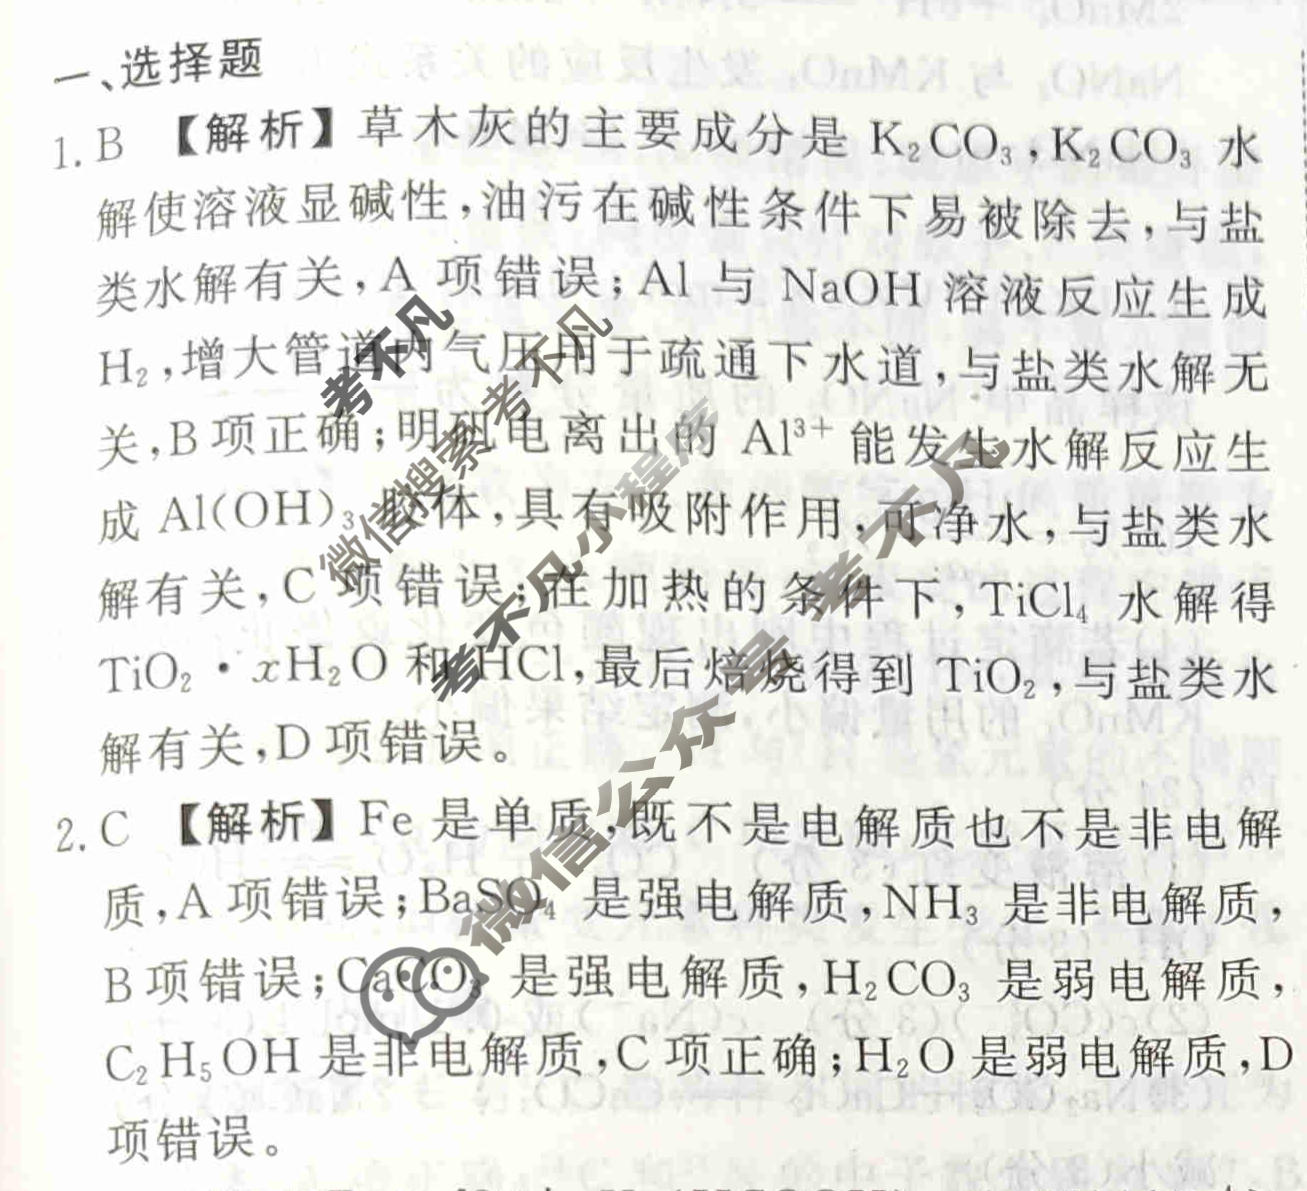 一、选择题
1. B 【解析】草木灰的主要成分是 K₂CO₃,K₂CO₃ 水
解使溶液显碱性,油污在碱性条件下易被除去,与盐
类水解有关,A 项错误;Al 与 NaOH 溶液反应生成
H₂,增大管道内气压用于疏通下水道,与盐类水解无
关,B项正确;明矾电离出的 Al³⁺ 能发生水解反应生
成 Al(OH)₃ 胶体,具有吸附作用,可净水,与盐类水
解有关,C 项错误;在加热的条件下,TiCl₄ 水解得
TiO₂·xH₂O 和 HCl,最后焙烧得到 TiO₂,与盐类水
解有关,D 项错误。
2. C 【解析】Fe 是单质,既不是电解质也不是非电解
质,A 项错误;BaSO₄ 是强电解质,NH₃ 是非电解质,
B 项错误;CaCO₃ 是强电解质,H₂CO₃ 是弱电解质,
C₂H₅OH 是非电解质,C 项正确;H₂O 是弱电解质,D
项错误。
考不凡
微信搜索考不凡
考不凡小程序
微信公众号 考不凡